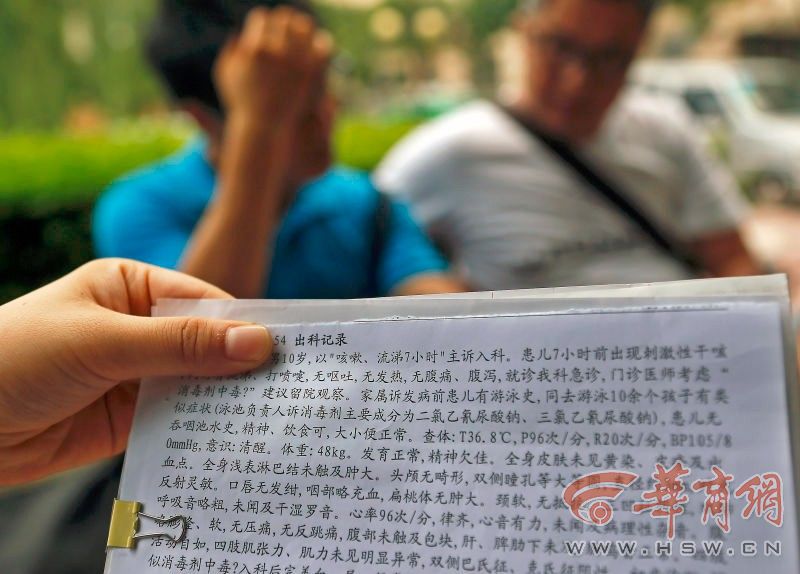 54 出科记录
男10岁,以"咳嗽、流涕7小时"主诉入科。患儿7小时前出现刺激性干咳
打喷嚏,无呕吐,无发热,无腹痛、腹泻,就诊我科急诊,门诊医师考虑"
消毒剂中毒?"建议留院观察。家属诉发病前患儿有游泳史,同去游泳10余个孩子有类
似症状(泳池负责人诉消毒剂主要成分为二氯乙氰尿酸钠、三氯乙氰尿酸钠),患儿无
吞咽池水史,精神、饮食可,大小便正常。查体:T36.8℃,P96次/分,R20次/分,BP105/8
0mmHg,意识:清醒。体重:48kg。发育正常,精神欠佳。全身皮肤未见黄染、皮疹及出
血点。全身浅表淋巴结未触及肿大。头颅无畸形,双侧瞳孔等大
反射灵敏。口唇无发绀,咽部略充血,扁桃体无肿大。颈软,无
呼吸音略粗,未闻及干湿罗音。心率96次/分,律齐,心音有力,未闻及病理性杂
软,无压痛,无反跳痛,腹部未触及包块,肝、脾肋下未
活动自如,四肢肌张力、肌力未见明显异常,双侧巴氏征、克氏征阴性
似消毒剂中毒?入科后完善
华商网
WWW.HSW.CN